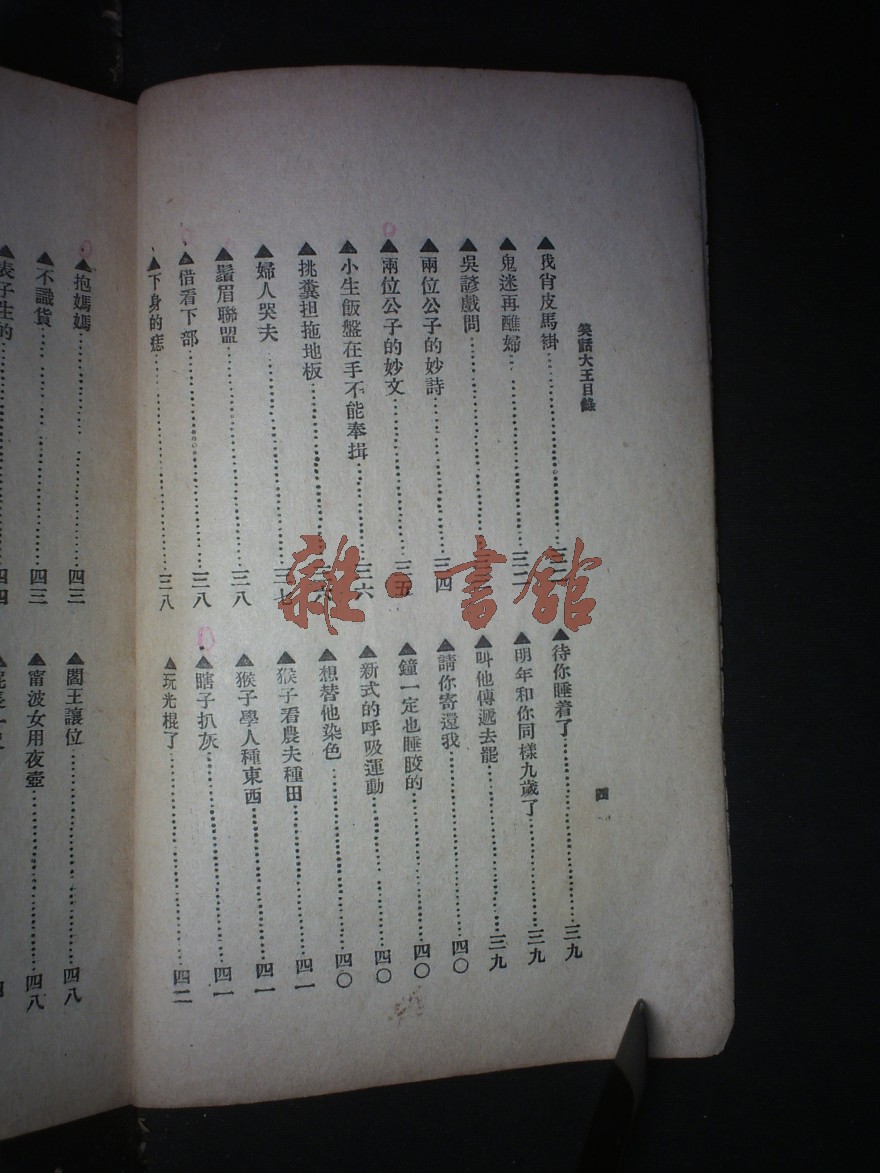 笑話大王目錄
▲我肖皮馬褂
▲鬼迷再醮婦
▲吳諺戲問
▲兩位公子的妙詩三四
▲兩位公子的妙文三五
▲小生飯盤在手不能奉揖三六
▲挑糞担拖地板
▲婦人哭夫三七
▲鬚眉聯盟三八
▲借看下部三八
▲下身的痣三八
▲待你睡着了三九
▲明年和你同樣九歲了三九
▲叫他傳遞去罷三九
▲請你寄還我四〇
▲鐘一定也睡胶的四〇
▲新式的呼吸運動四〇
▲想替他染色四〇
▲猴子看農夫種田四一
▲猴子學人種東西四一
▲瞎子扒灰四一
▲玩光棍了四二
四
▲抱媽媽四三
▲不識貨四三
▲表子生的四四
▲閻王讓位四八
▲甯波女用夜壺四八
雜·書館